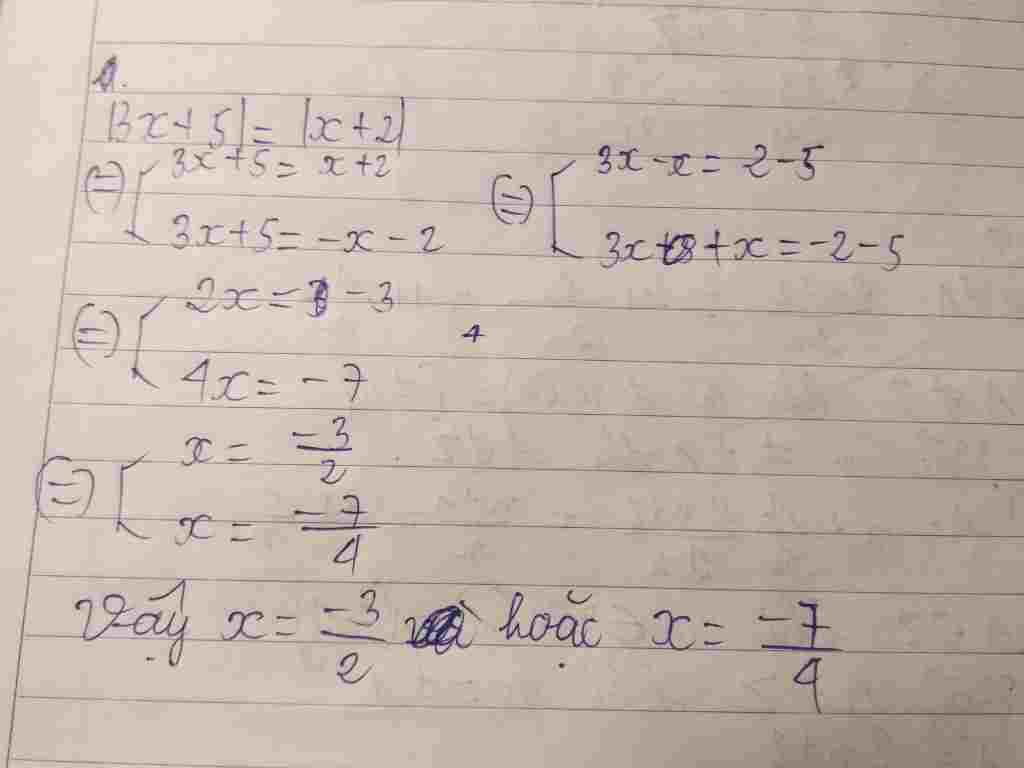 1.
|3x+5| = |x+2|
(=) [ 3x+5 = x+2
3x+5 = -x-2
(=) [ 3x-x = 2-5
3x+x = -2-5
(=) [ 2x = -3
4x = -7
(=) [ x = -3/2
x = -7/4
Vậy x = -3/2 hoặc x = -7/4